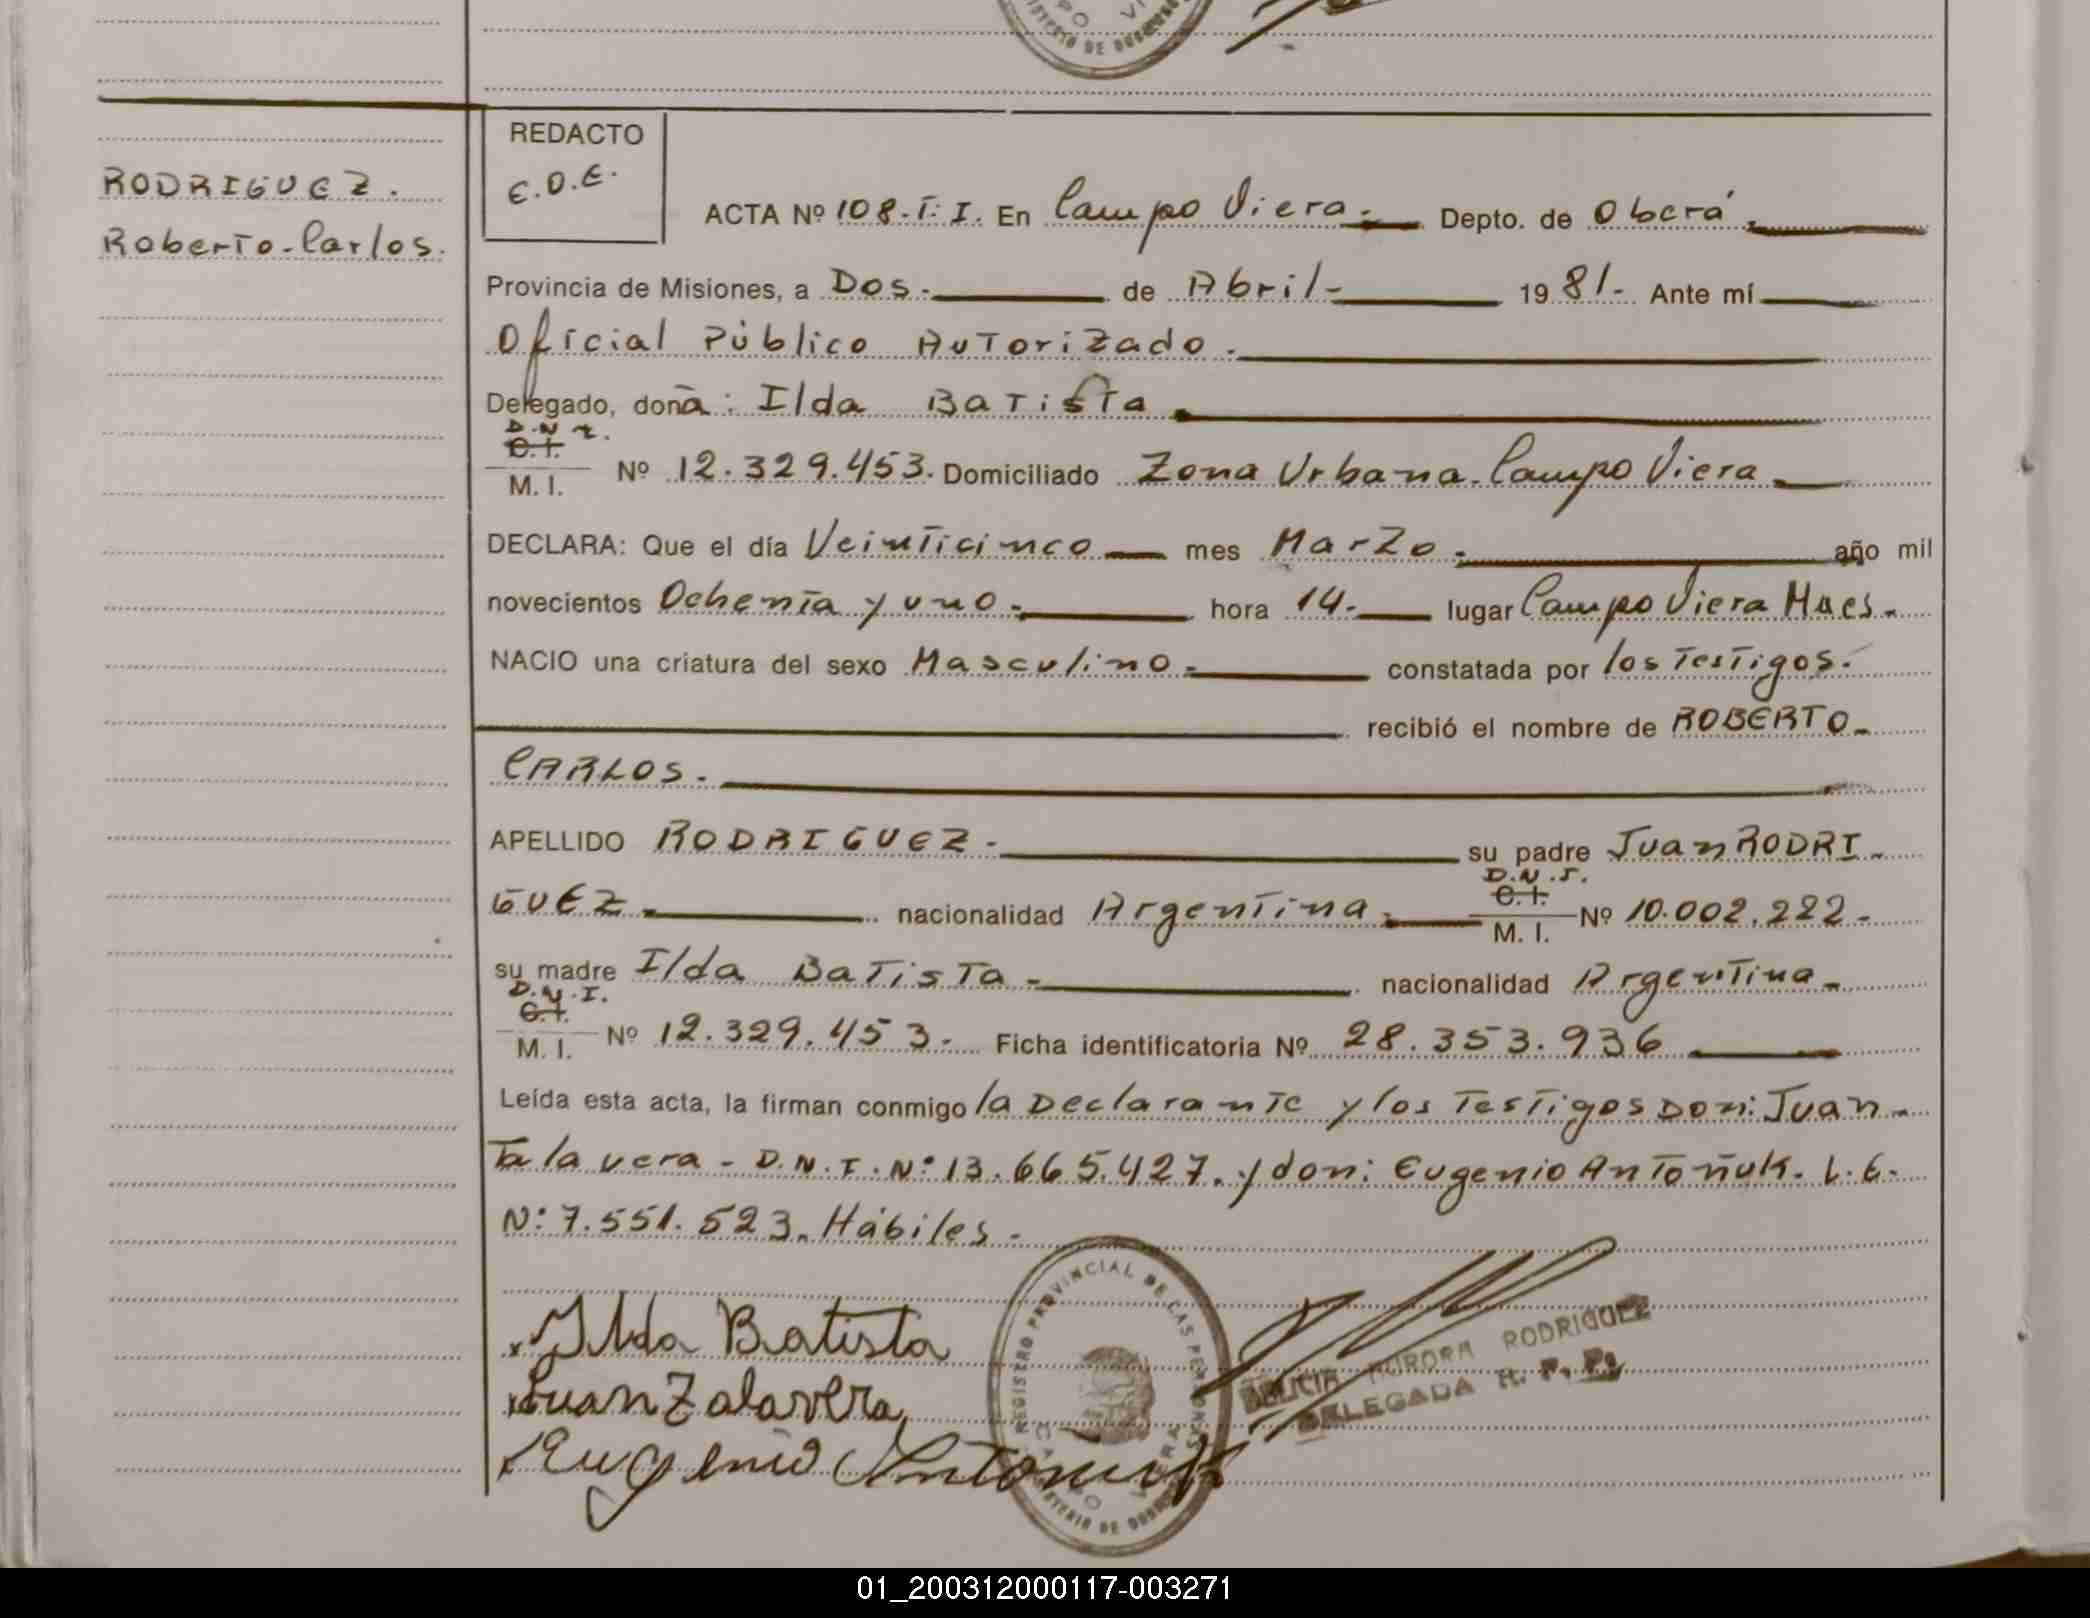 PO VI
STERIO DE GOBIE
REDACTO
E.O.E.
RODRIGUEZ.
Roberto-Carlos.
ACTA Nº 108.T:I. En Campo Viera.- Depto. de Oberá.
Provincia de Misiones, a Dos. de Abril- 1981.- Ante mí
Oficial Público Autorizado.
Delegado, doña: Ilda Batista
D.N.I.
C.I.
M. I. Nº 12.329.453. Domiciliado Zona Urbana. Campo Viera
DECLARA: Que el día Veinticinco mes Marzo. año mil
novecientos Ochenta y uno. hora 14.- lugar Campo Viera Mnes.
NACIO una criatura del sexo Masculino.- constatada por los Testigos.
recibió el nombre de ROBERTO
CARLOS.
APELLIDO RODRIGUEZ.- su padre Juan RODRI
GUEZ nacionalidad Argentina. D.N.I. C.I. M. I. Nº 10.002.222.
su madre Ilda Batista.- nacionalidad Argentina.
D.N.I.
C.I.
M. I. Nº 12.329.453. Ficha identificatoria Nº 28.353.936
Leída esta acta, la firman conmigo la Declarante y los Testigos Don: Juan
Talavera - D.N.I. Nº: 13.665.427. y don: Eugenio Antoñuk. L.E.
Nº: 7.551.523. Hábiles.
Ilda Batista
Juan Zalavera
Eugenio Antoniuk
REGISTRO PROVINCIAL DE LAS PERSONAS
CAMPO VIERA
DELICIA AURORA RODRIGUEZ
DELEGADA R. P. P.
01_200312000117-003271